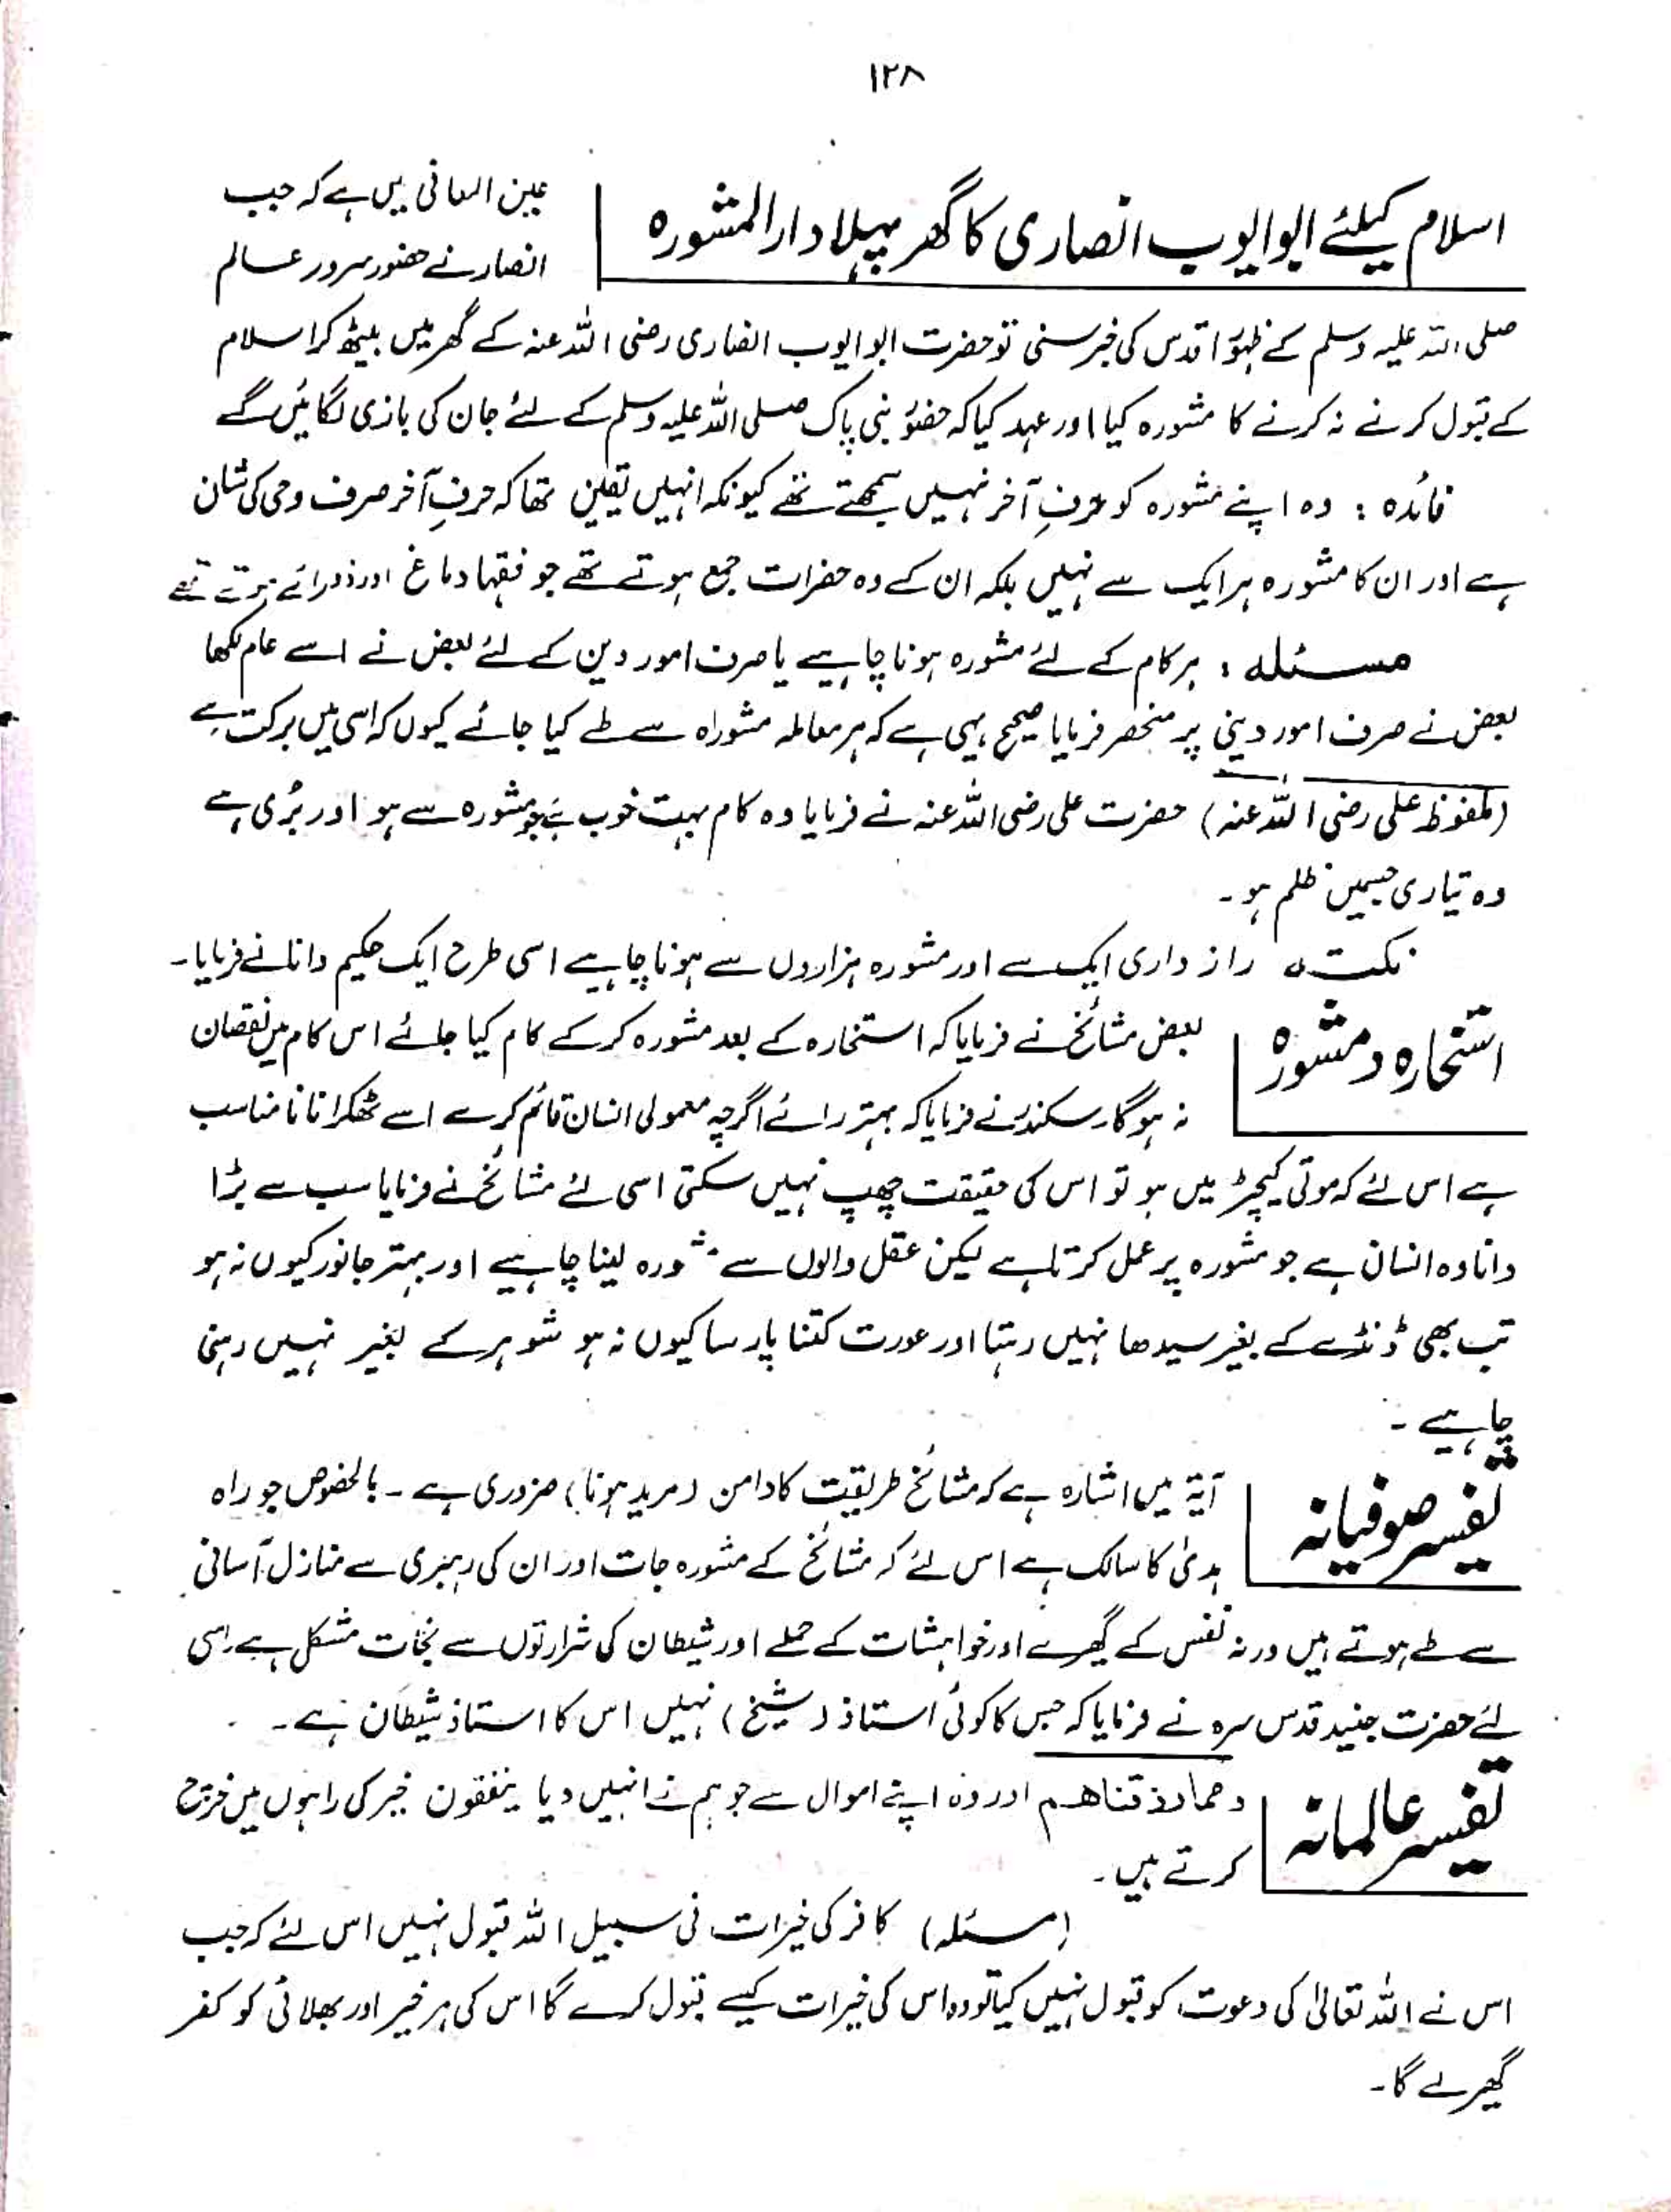 ۱۲۸
اسلام کیلئے ابوایوب انصاری کا گھر پہلا دارالمشورہ
عین المعانی میں ہے کہ جب
انصار نے حضور سرور عالم
صلی اللہ علیہ وسلم کے ظہور اقدس کی خبر سنی تو حضرت ابو ایوب انصاری رضی اللہ عنہ کے گھر میں بیٹھ کر اسلام
کے قبول کرنے نہ کرنے کا مشورہ کیا اور عہد کیا کہ حضور نبی پاک صلی اللہ علیہ وسلم کے لئے جان کی بازی لگائیں گے
فائدہ : وہ اپنے مشورہ کو حرفِ آخر نہیں سمجھتے تھے کیونکہ انہیں یقین تھا کہ حرفِ آخر صرف وحی کی شان
ہے اور ان کا مشورہ ہر ایک سے نہیں بلکہ ان کے وہ حضرات جمع ہوتے تھے جو فقہا دماغ اور ذورائے ہوتے تھے
مسئلہ : ہر کام کے لئے مشورہ ہونا چاہیے یا صرف امور دین کے لئے بعض نے اسے عام لکھا
بعض نے صرف امور دینی پر منحصر فرمایا صحیح یہی ہے کہ ہر معاملہ مشوراہ سے طے کیا جائے کیوں کہ اسی میں برکت ہے
(ملفوظ علی رضی اللہ عنہ) حضرت علی رضی اللہ عنہ نے فرمایا وہ کام بہت خوب ہے جو مشورہ سے ہو اور بُری ہے
وہ تیاری جسمیں ظلم ہو ۔
نکتہ راز داری ایک سے اور مشورہ ہزاروں سے ہونا چاہیے اسی طرح ایک حکیم دانا نے فرمایا ۔
استخارہ و مشورہ
بعض مشائخ نے فرمایا کہ استخارہ کے بعد مشورہ کر کے کام کیا جائے اس کام میں نقصان
نہ ہو گا۔ سکندر نے فرمایا کہ بہتر رائے اگرچہ معمولی انسان قائم کرے اسے ٹھکرانا نامناسب
ہے اس لئے کہ موتی کیچڑ میں ہو تو اس کی حقیقت چھپ نہیں سکتی اسی لئے مشائخ نے فرمایا سب سے بڑا
دانا وہ انسان ہے جو مشورہ پر عمل کرتا ہے لیکن عقل والوں سے مشورہ لینا چاہیے اور بہتر جانور کیوں نہ ہو
تب بھی ڈنڈے کے بغیر سیدھا نہیں رہتا اور عورت کتنا پارسا کیوں نہ ہو شوہر کے بغیر نہیں رہنی
چاہیے ۔
تفسیر صوفیانہ
آیۃ میں اشارہ ہے کہ مشائخ طریقیت کا دامن (مرید ہونا) ضروری ہے ۔ بالخصوص جو راہ
ہدیٰ کا سالک ہے اس لئے کہ مشائخ کے مشورہ جات اور ان کی رہبری سے منازل آسانی
سے طے ہوتے ہیں ورنہ نفس کے گھیرے اور خواہشات کے حملے اور شیطان کی شرارتوں سے نجات مشکل ہے۔ اسی
لئے حضرت جنید قدس سرہ نے فرمایا کہ جس کا کوئی استاذ (شیخ) نہیں اس کا استاذ شیطان ہے ۔
تفسیر عالمانہ
ومما رزقناهم اور وہ اپنے اموال سے جو ہم نے انہیں دیا ینفقون خیر کی راہوں میں خرچ
کرتے ہیں ۔
(مسئلہ) کافر کی خیرات فی سبیل اللہ قبول نہیں اس لئے کہ جب
اس نے اللہ تعالیٰ کی دعوت کو قبول نہیں کیا تو وہ اس کی خیرات کیسے قبول کرے گا اس کی ہر خیر اور بھلائی کو کفر
گھیر لے گا ۔